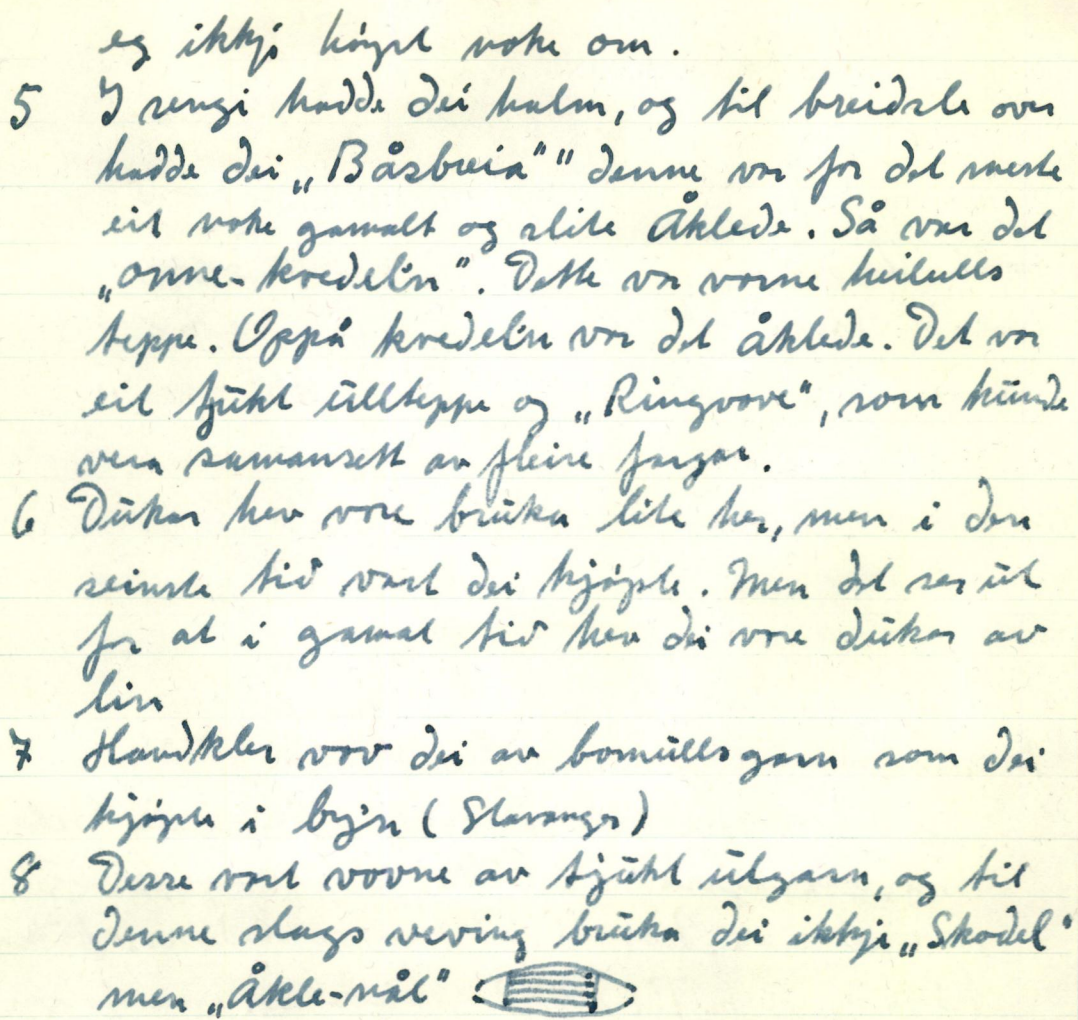 eg ikkje høyrt noke om.
5 I sengi hadde dei halm, og til breidsle over
hadde dei „Båsbreia“" denne var for det meste
eit noke gamalt og slite Åklede. Så var det
„onne-kvedel'n“. Dette var vovne heilulls
teppe. Oppå kvedel'n var det åklede. Det var
eit tjukt ullteppe og „Ringvove“, som kunde
vera samansett av fleire fargar.
6 Dukar hev vore bruka lite her, men i den
seinste tid vart dei kjøpte. Men det ser ut
for at i gamal tid hev dei vore dukar av
lin
7 Handkler vov dei av bomullsgarn som dei
kjøpte i byjn (Stavanger)
8 Desse vart vovne av tjukt ulgarn, og til
denne slags veving bruka dei ikkje „Skodel“
men „Åkle-nål“